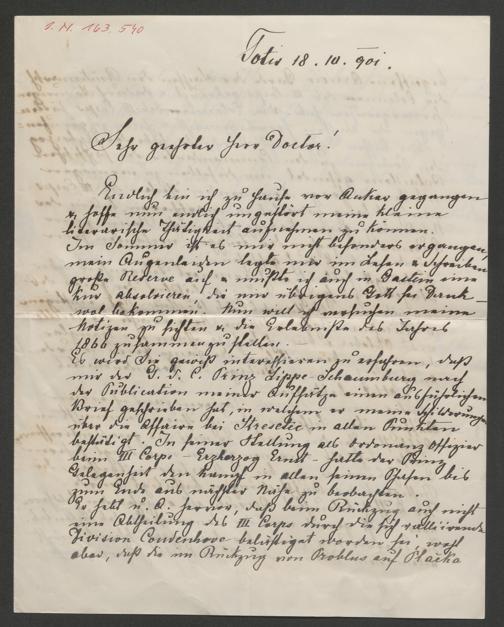 I. N. 163.540
Totis 18. 10. 901.
Sehr geehrter Herr Doctor!
Endlich bin ich zu Hause vor Anker gegangen
u. hoffe nun endlich ungestört meine kleine
literarische Thätigkeit aufnehmen zu können.
Im Sommer ist es mir nicht besonders ergangen,
mein Augenleiden legte mir im Lesen u. Schreiben
große Reserve auf u. mußte ich auch in Gastein eine
Kur absolvieren, die mir übrigens Gott sei Dank
wol bekommen. Nun will ich versuchen meine
Notizen zu sichten u. die Erlebnisse des Jahres
1866 zusammenzustellen.
Es wird Sie gewiß interessieren zu erfahren, daß
mir der G. d. C. Prinz Lippe-Schaumburg nach
der Publication meiner Aufsätze einen ausführlichen
Brief geschrieben hat, in welchem er meine Schilderungen
über die Affaire bei Stresetic in allen Punkten
bestätigt. In seiner Stellung als Ordonanz Offizier
beim III Corps - Erzherzog Ernst - hatte der Prinz
Gelegenheit den Kampf in allen seinen Phasen bis
zum Ende aus nächster Nähe zu beobachten.
Er hebt u. A. hervor, daß beim Rückzug auch nicht
eine Abtheilung des III Corps durch die sich ralliirende
Division Coudenhove belästiget worden sei, wohl
aber, daß die im Rückzug von Problus auf Placka